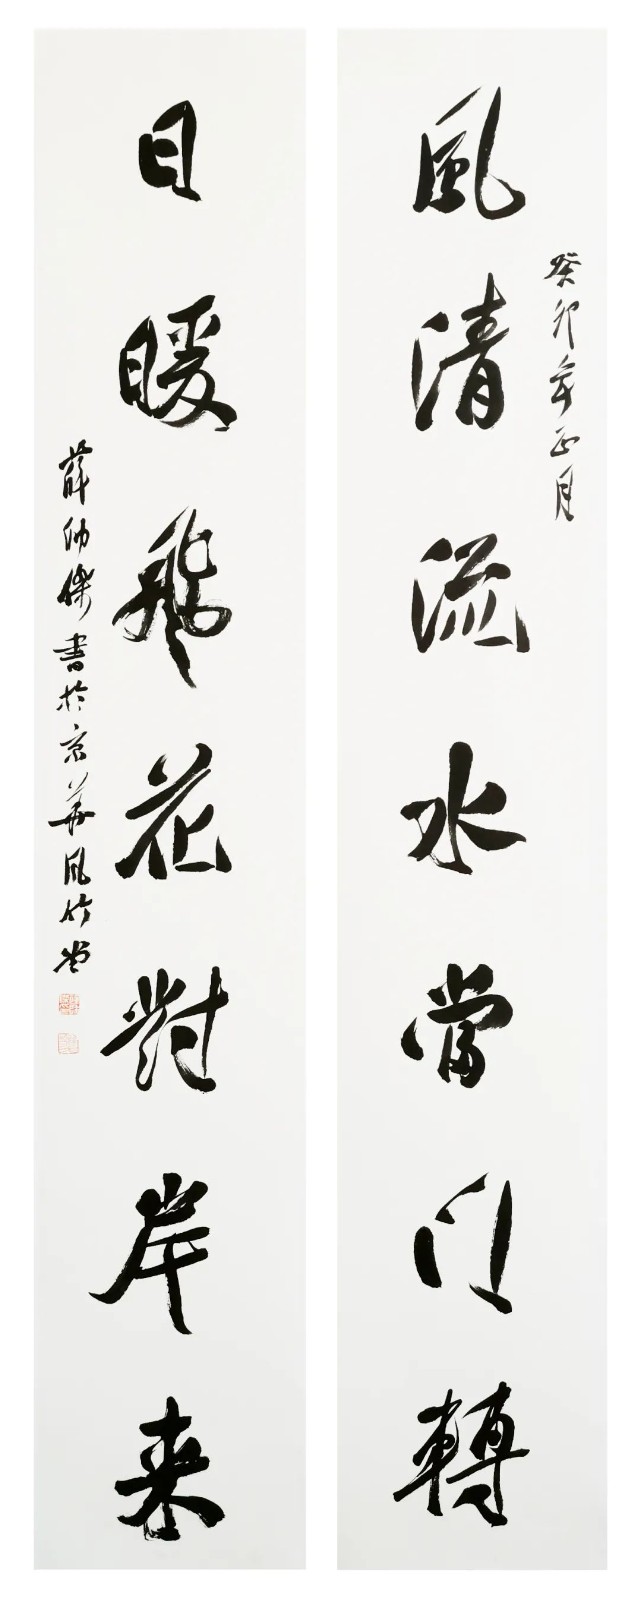 癸卯年正月
風清流水當门轉
日暖飛花對岸来
薛帅傑書於京華风竹堂